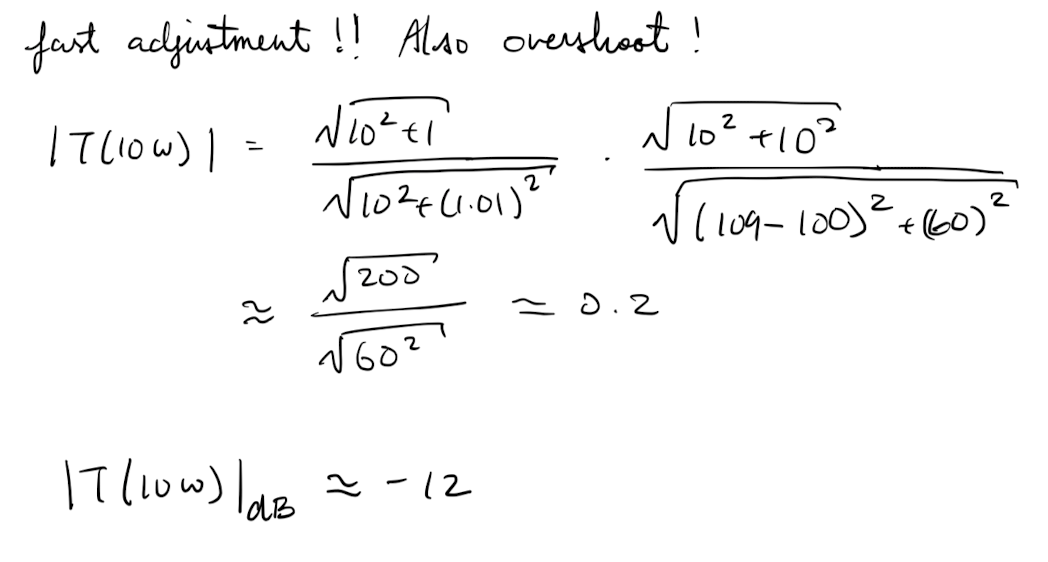 fast adjustment !! Also overshoot !
|T(10ω)| = √(10² + 1) / √(10² + (1.01)²) · √(10² + 10²) / √((109 - 100)² + (60)²)
≈ √200 / √60² ≈ 0.2
|T(10ω)|dB ≈ -12